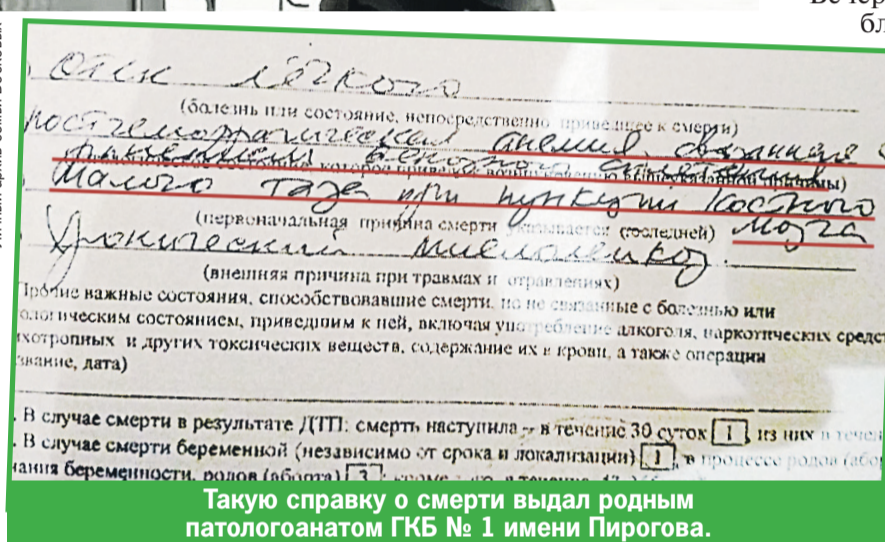 Вечер
бл
Отёк лёгкого
(болезнь или состояние, непосредственно приведшее к смерти)
постгеморрагическая анемия, связанная с
ранением венозного сплетения
малого таза при пункции костного
(первоначальная причина смерти указывается последней) мозга
Хронический миелолейкоз.
(внешняя причина при травмах и отравлениях)
Прочие важные состояния, способствовавшие смерти, но не связанные с болезнью или
ологическим состоянием, приведшим к ней, включая употребление алкоголя, наркотических средст
ихотропных и других токсических веществ, содержание их в крови, а также операции
звание, дата)
. В случае смерти в результате ДТП: смерть наступила – в течение 30 суток 1, из них в течен
. В случае смерти беременной (независимо от срока и локализации) 1, в процессе родов (абор
чания беременности, родов (аборта) 3;
Такую справку о смерти выдал родным
патологоанатом ГКБ № 1 имени Пирогова.